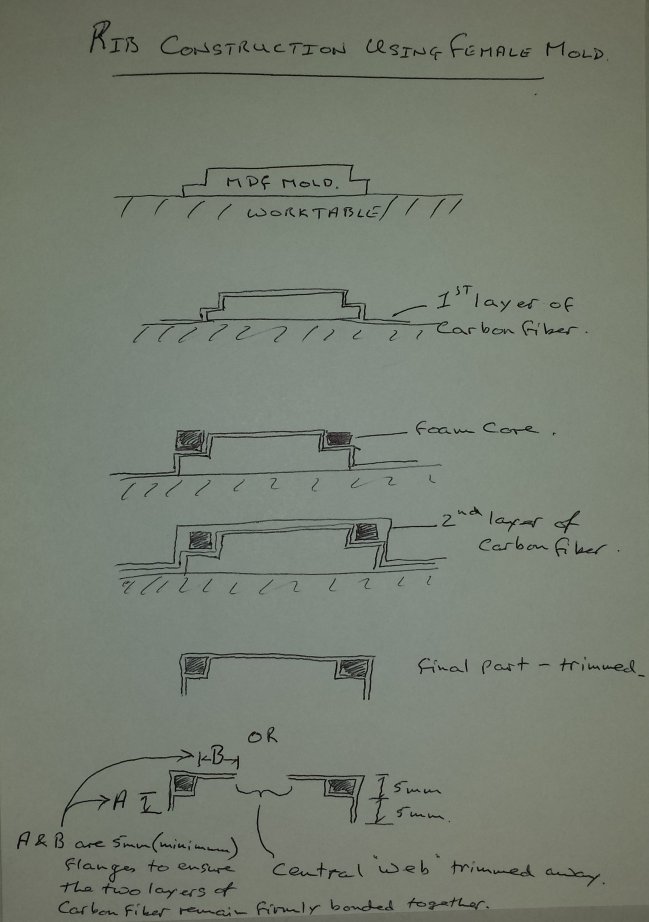 RIB CONSTRUCTION USING FEMALE MOLD.
MDF MOLD.
WORKTABLE
1ST layer of
Carbon Fiber.
foam Core.
2nd layer of
Carbon fiber.
final part - trimmed
OR
B
A
5mm
5mm.
A & B are 5mm (minimum)
flanges to ensure
the two layers of
Carbon Fiber remain firmly bonded together.
Central "web" trimmed away.